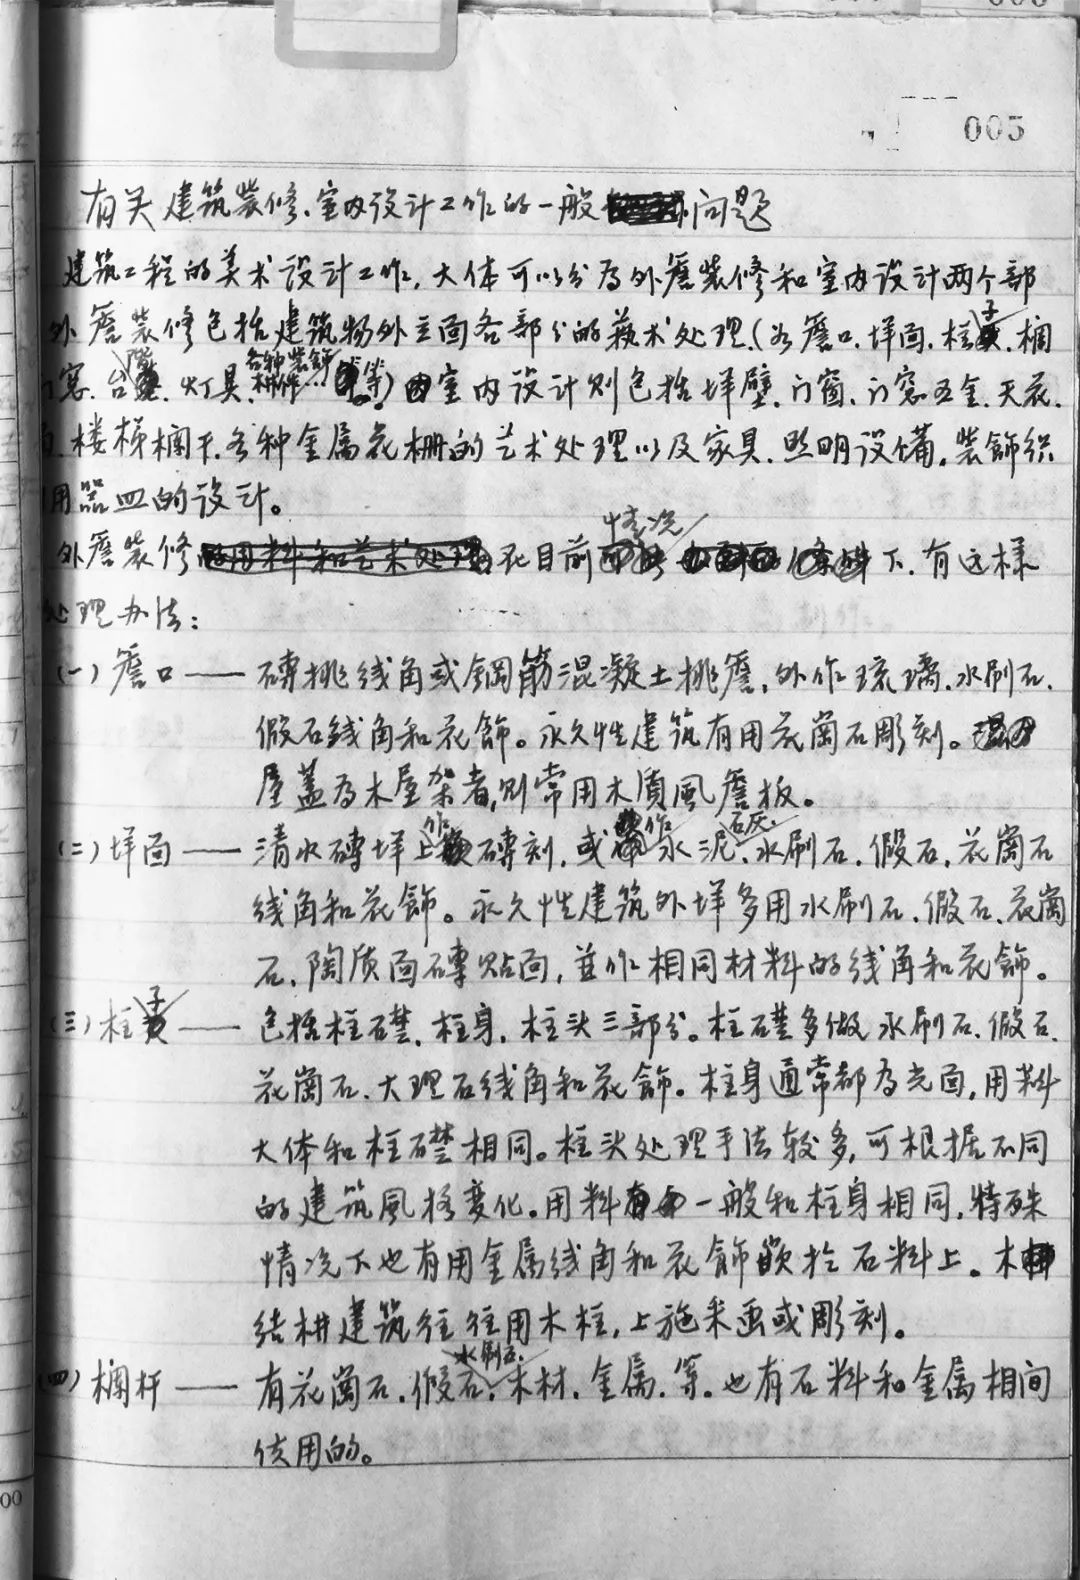 005
有关建筑装修、室内设计工作的一般问题
建筑工程的美术设计工作,大体可以分为外簷装修和室内设计两个部
外簷装修包括建筑物外立面各部分的藝术处理(如簷口、墙面、柱子、欄
窓、台階、灯具、各种装飾構件…等)室内设计则包括墙壁、门窗、门窓五金、天花、
楼梯欄干、各种金属花栅的艺术处理以及家具、照明设備,装飾织
用器皿的设计。
外簷装修在目前情况下,有这样
处理办法:
(一)簷口——磚挑线角或鋼筋混凝土挑簷,外作琉璃、水刷石、
假石线角和花飾。永久性建筑有用花崗石彫刻。
屋蓋为木屋架者,则常用木質風簷板。
(二)墙面——清水磚墙上作磚刻,或作水泥、石灰、水刷石、假石、花崗石
线角和花飾。永久性建筑外墙多用水刷石、假石、花崗
石、陶质面磚贴面,並作相同材料的线角和花飾。
(三)柱子——包括柱礎、柱身、柱头三部分。柱礎多做水刷石、假石、
花崗石、大理石线角和花飾。柱身通常都为光面,用料
大体和柱礎相同。柱头处理手法较多,可根据不同
的建筑風格变化。用料一般和柱身相同,特殊
情况下也有用金属线角和花飾嵌於石料上。木
结構建筑往往用木柱,上施采画或彫刻。
(四)欄杆——有花崗石、假石、水刷石、木材、金属、等。也有石料和金属相间
使用的。